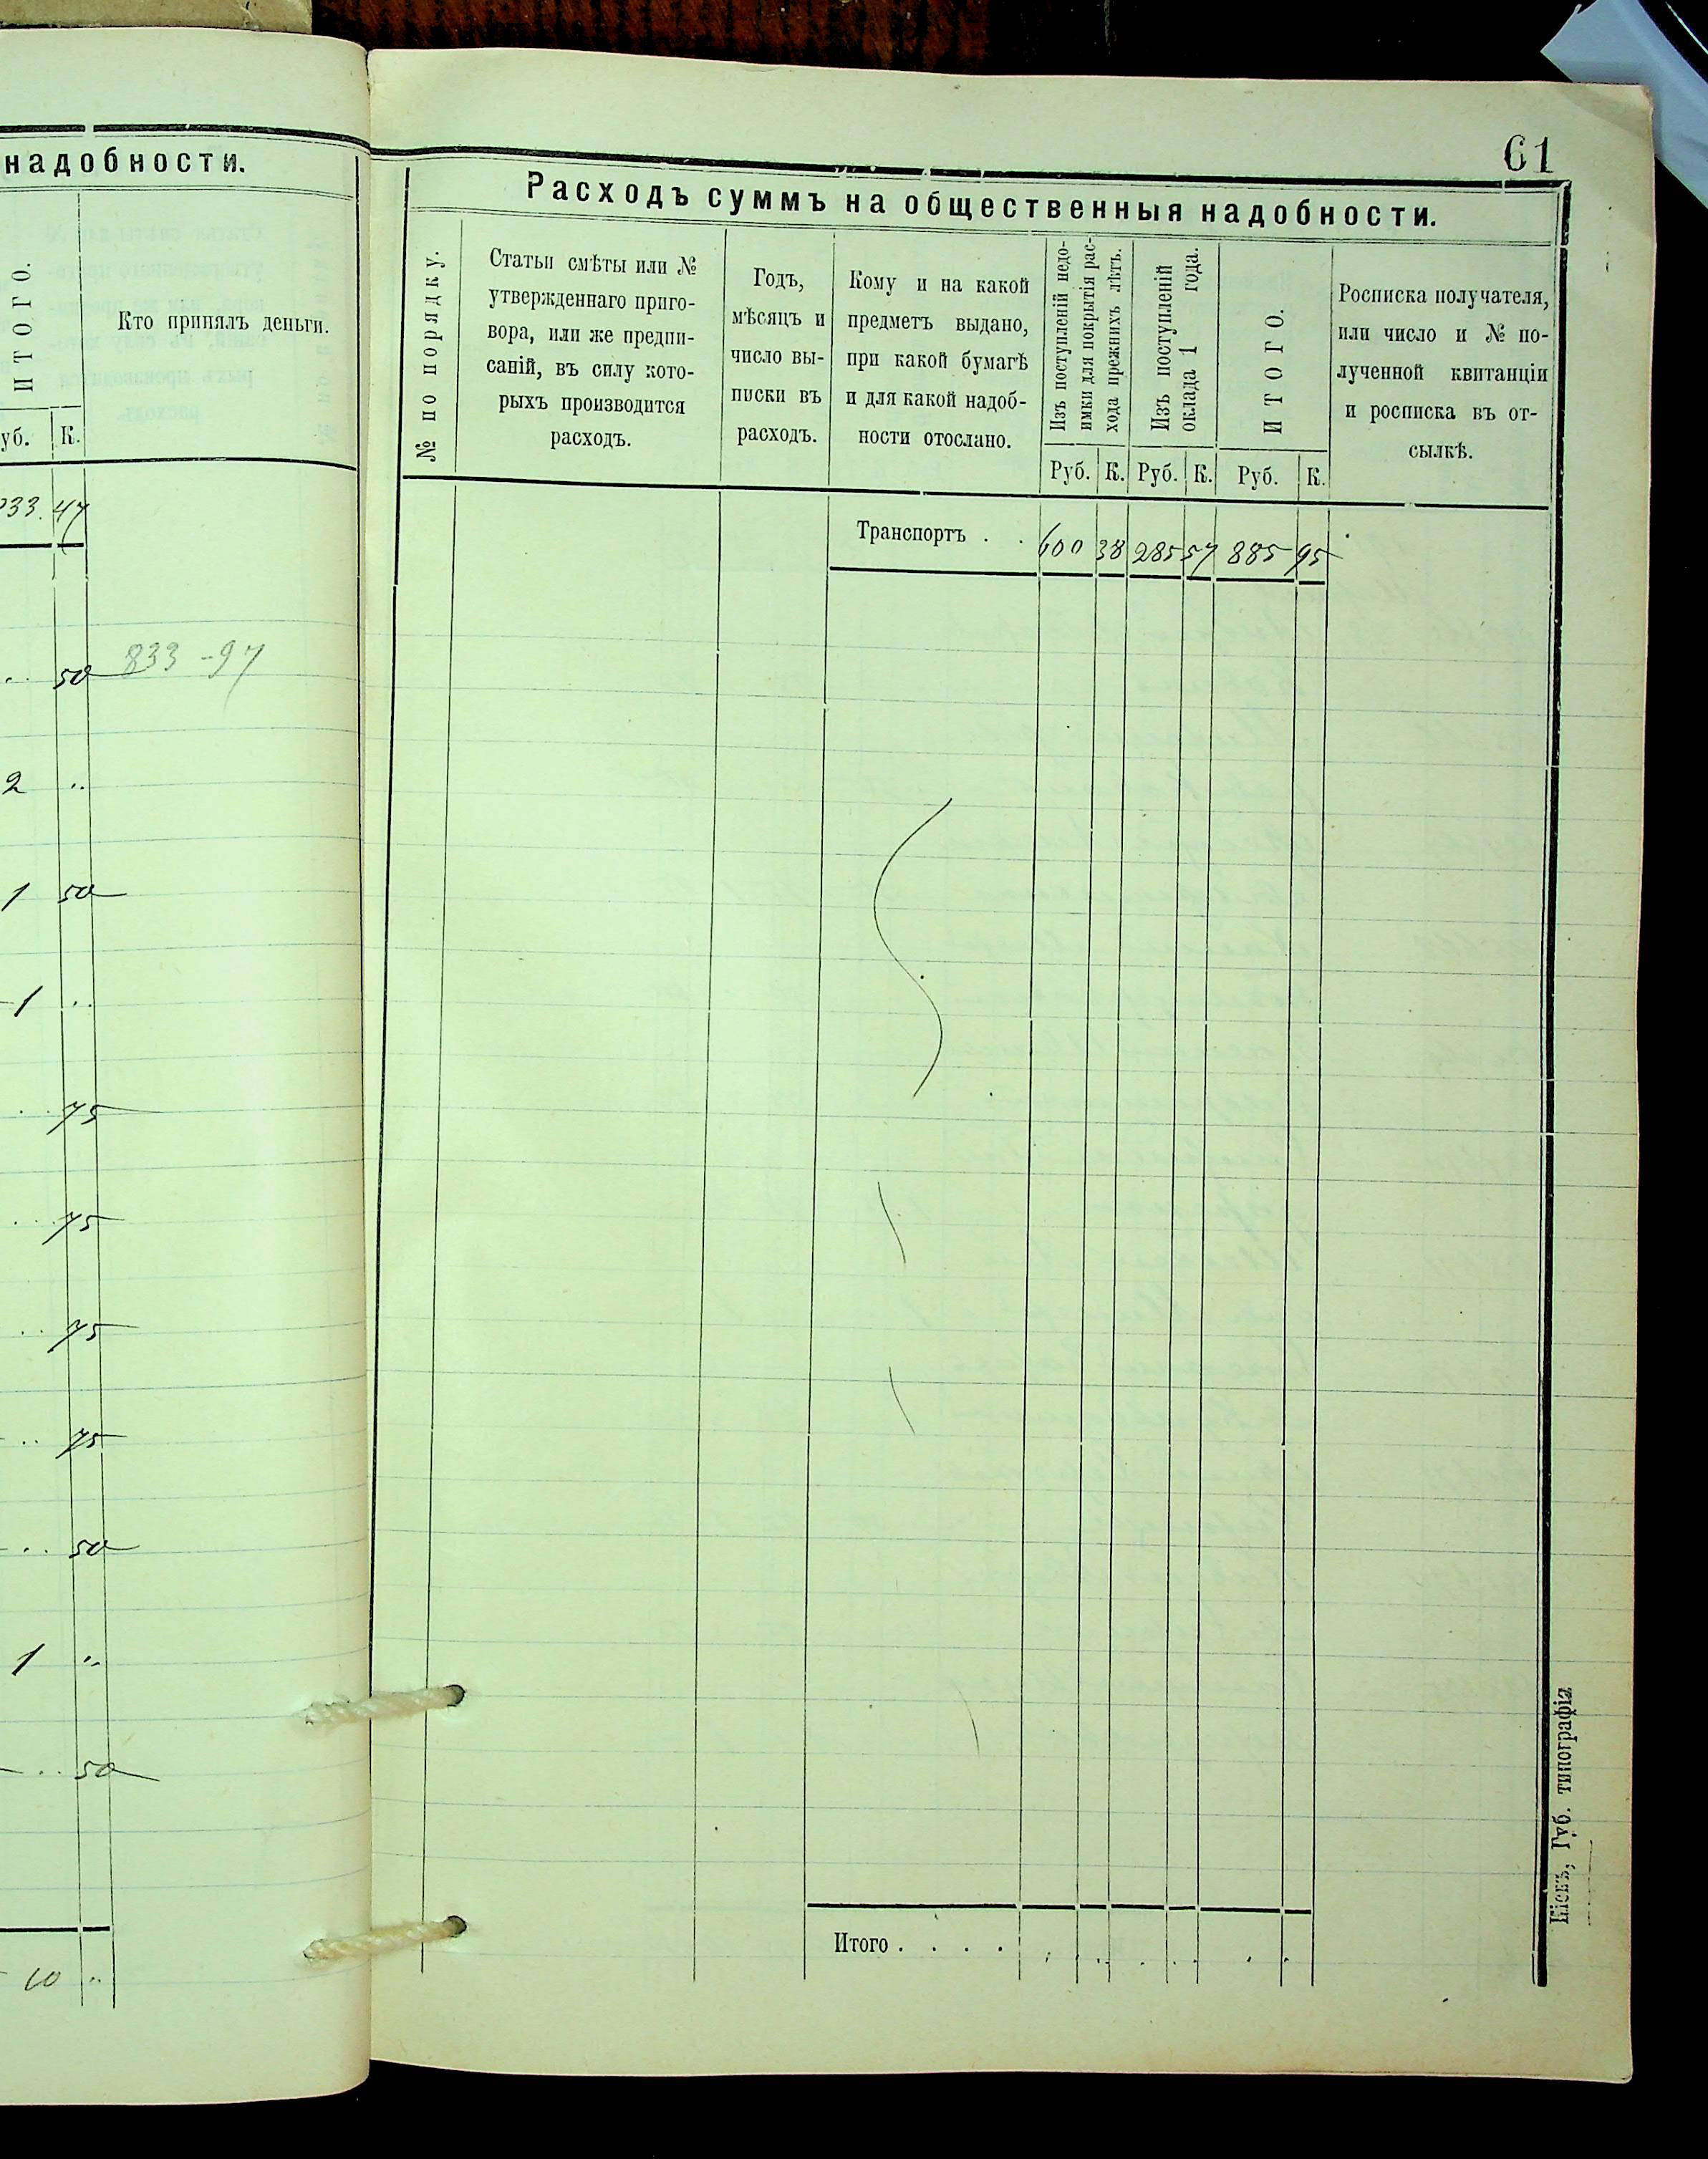 надобности.
ИТОГО.
Кто принялъ деньги.
уб. К.
33. 47
50 833-97
2 ..
1 50
1 ..
75
75
75
75
50
1 ..
50
10 ..
61
Расходъ суммъ на общественныя надобности.
№ по порядку.
Статьи смѣты или №
утвержденнаго приго-
вора, или же предпи-
саній, въ силу кото-
рыхъ производится
расходъ.
Годъ,
мѣсяцъ и
число вы-
писки въ
расходъ.
Кому и на какой
предметъ выдано,
при какой бумагѣ
и для какой надоб-
ности отослано.
Изъ поступленій недо-
имки для покрытія рас-
хода прежнихъ лѣтъ.
Изъ поступленій
оклада 1 года.
ИТОГО.
Росписка получателя,
или число и № по-
лученной квитанціи
и росписка въ от-
сылкѣ.
Руб. К. Руб. К. Руб. К.
Транспортъ . . 600 38 285 57 885 95
Итого . . . .
Кіевъ, Губ. типографія